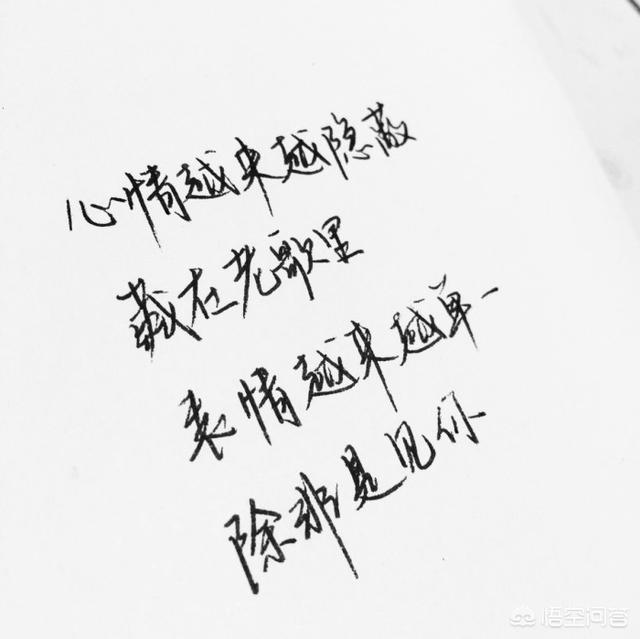 心情越来越隐蔽
藏在老歌里
表情越来越单一
除非是见你
悟空问答